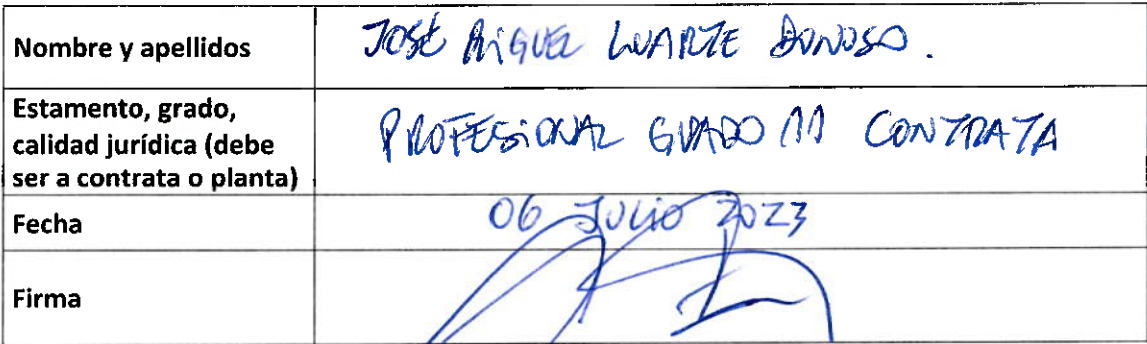 Nombre y apellidos
JOSÉ MIGUEL LUARTE DONOSO.
Estamento, grado,
calidad jurídica (debe
ser a contrata o planta)
PROFESIONAL GRADO 11 CONTRATA
Fecha
06 JULIO 2023
Firma